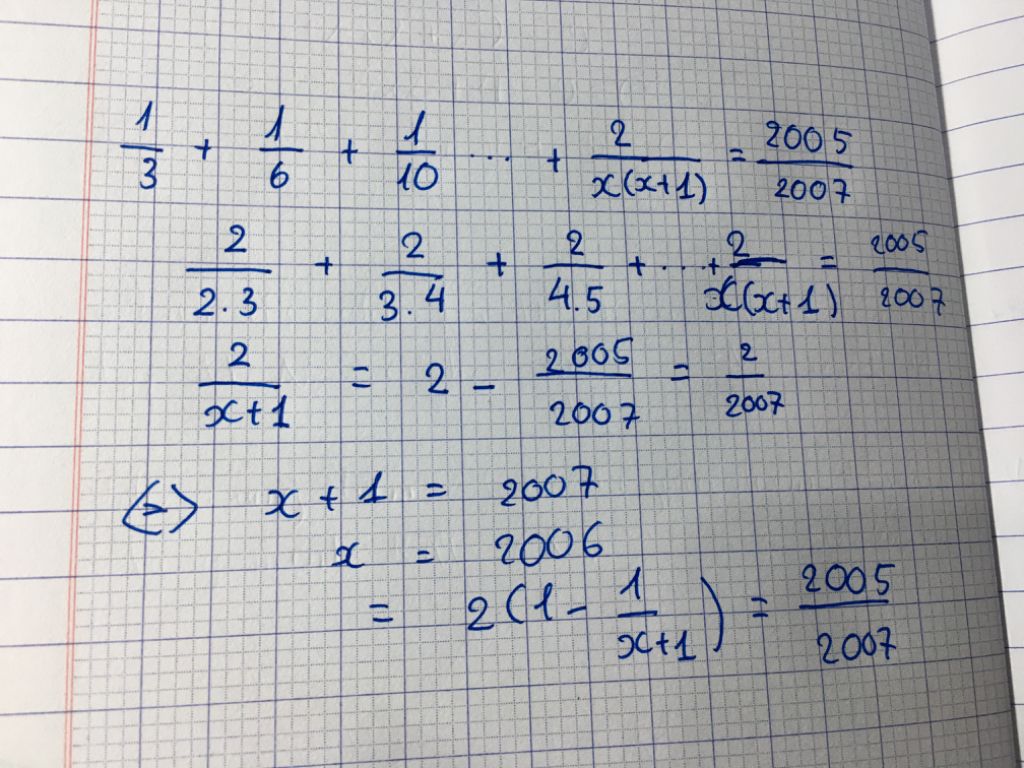 1/3 + 1/6 + 1/10 ... + 2/x(x+1) = 2005/2007
2/2.3 + 2/3.4 + 2/4.5 + ...+ 2/x(x+1) = 2005/2007
2/x+1 = 2 - 2005/2007 = 2/2007
<=> x + 1 = 2007
x = 2006
= 2(1 - 1/x+1) = 2005/2007